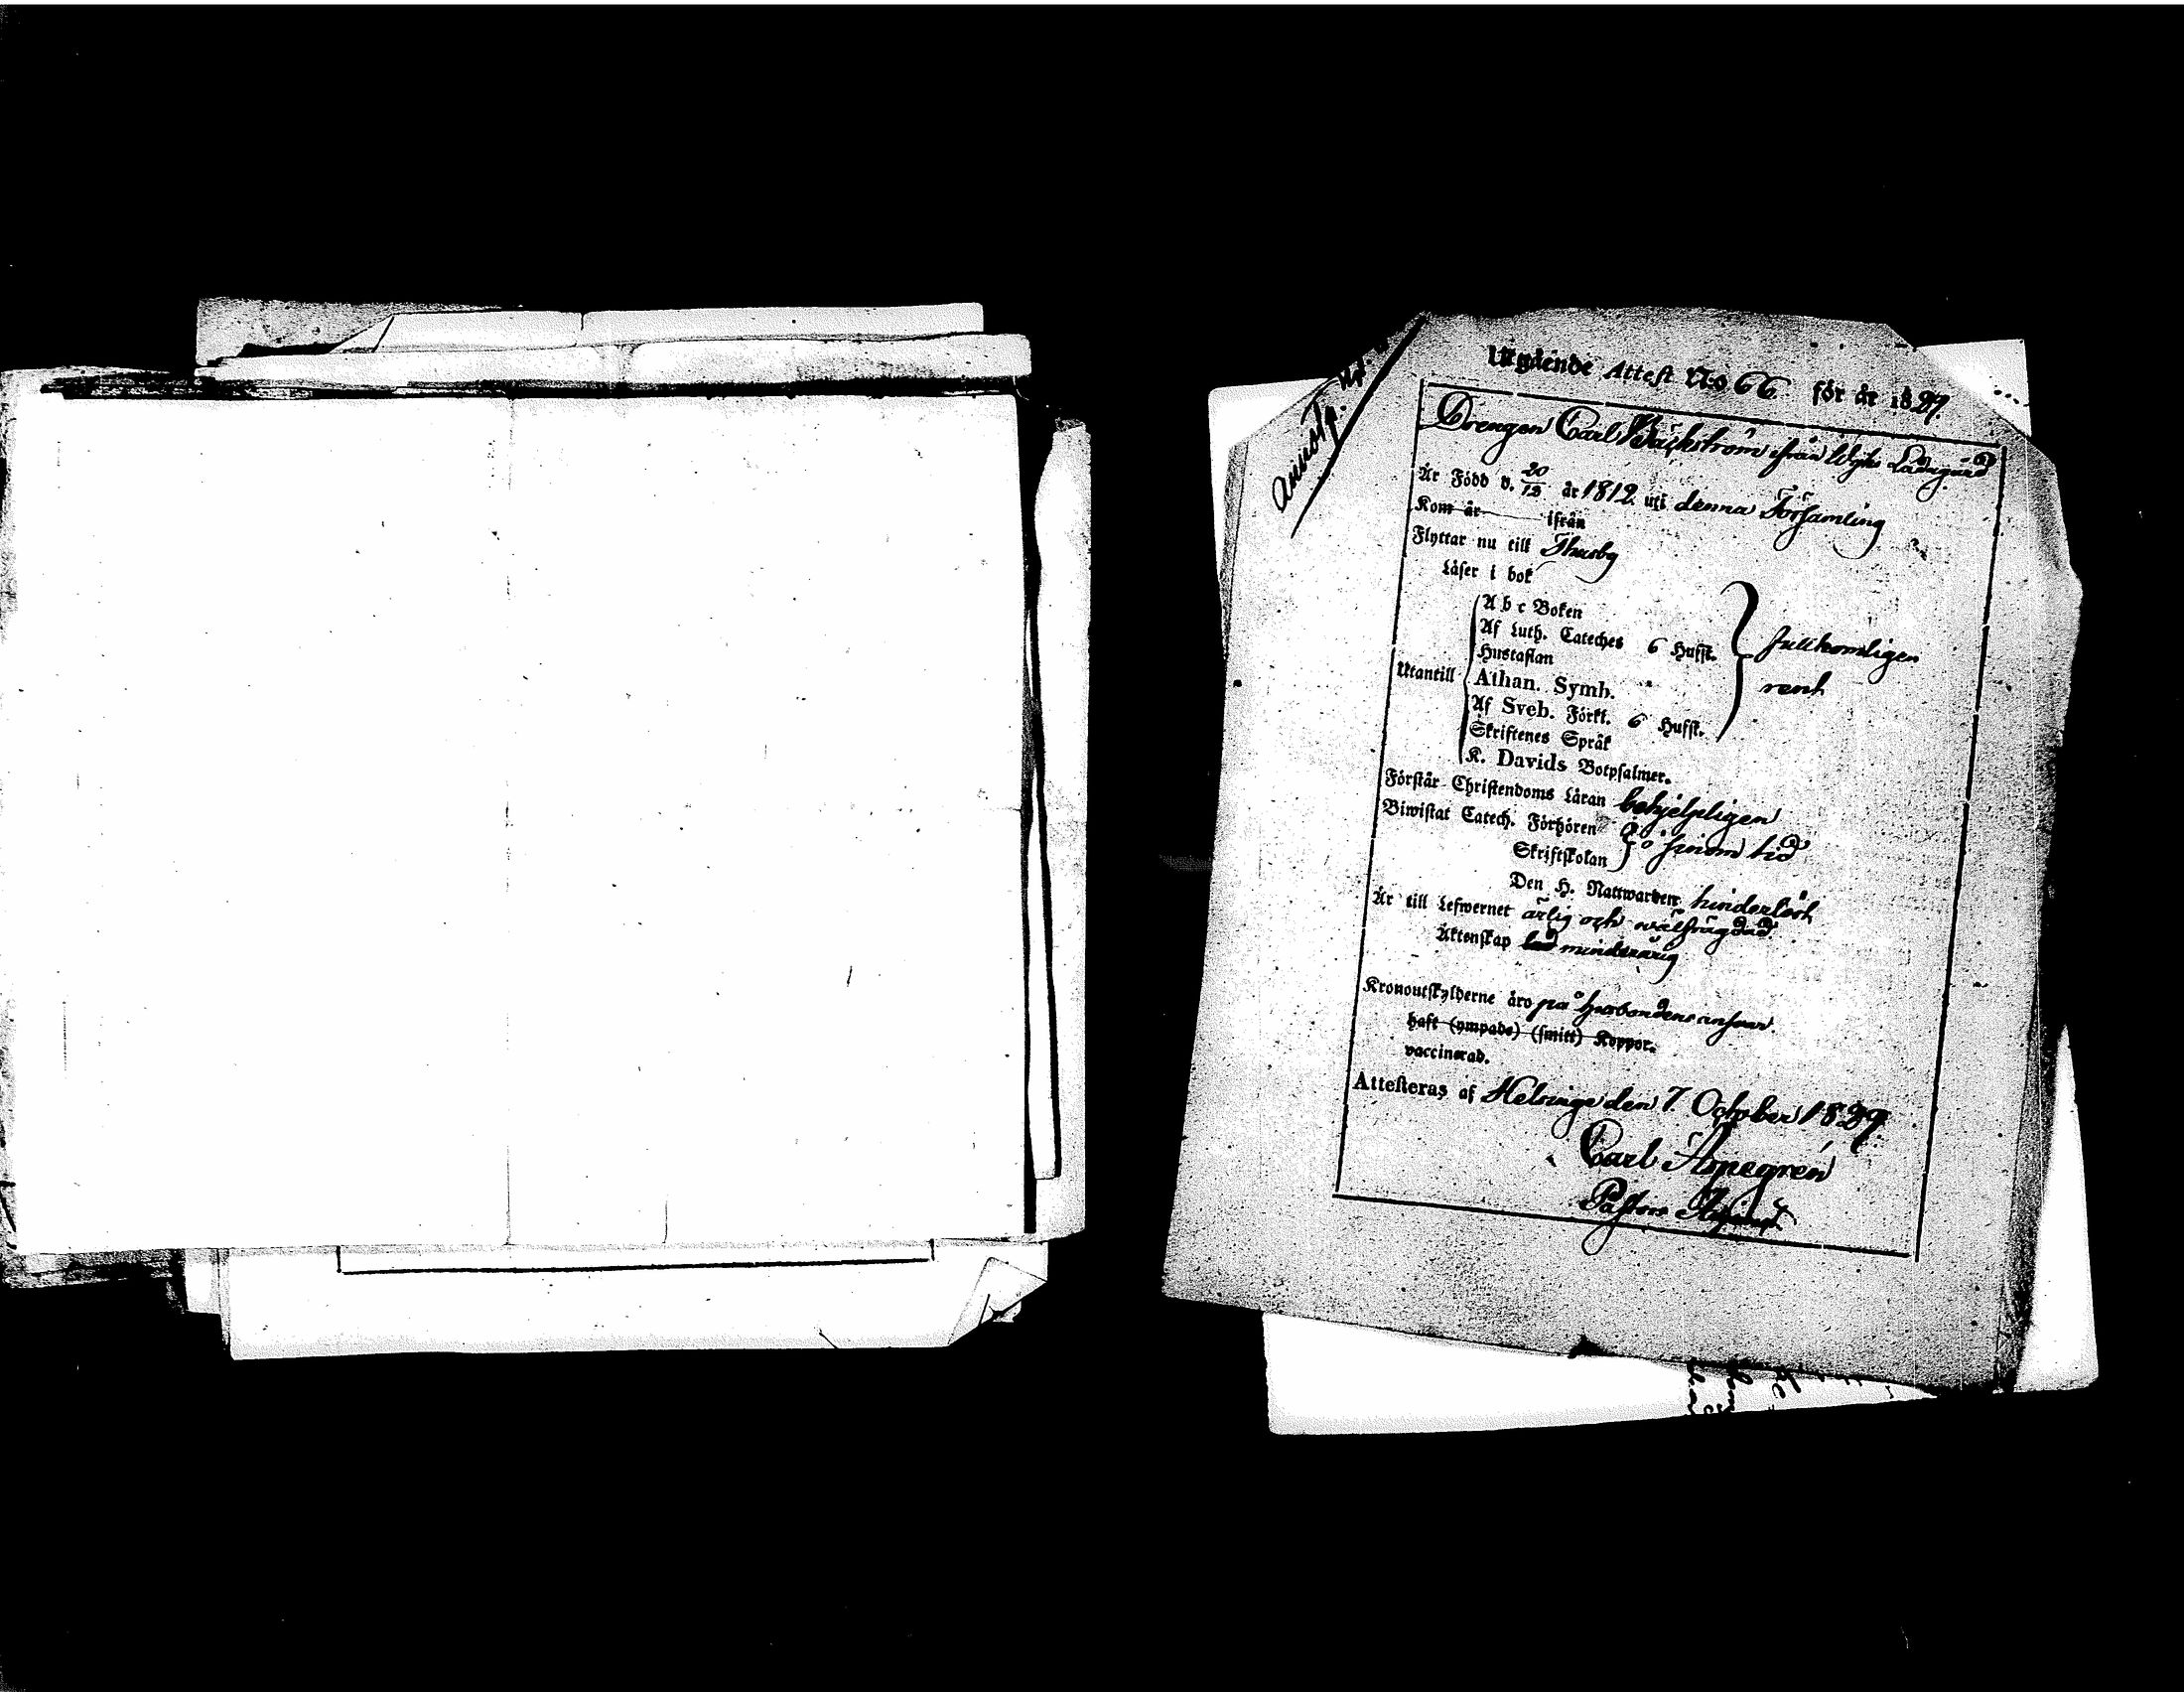 Utgående Attest No 66 för år 1829.
Drengen Carl Bäckström från Wijks Ladugård
Är Född d. 20/12 år 1812 uti denna Församling
Kom år ifrån
Flyttar nu till Thusby
Läser i bok
A b c Boken
Af Luth. Cateches 6 Hufst.
Hustaflan
fullkomligen
Utantill
Athan. Symb.
rent
Af Sveb. Förkl. 6 Hufst.
Skriftenes Språk
K. Davids Botpsalmer.
Förstår Christendoms Läran behjelpligen
Biwistat Catech. Förhören
Skriftskolan
å sinom tid
Den H. Nattwarden hinderlöst
Är till Lefwernet ärlig och wälfrägdad
Äktenskap minderårig
Kronoutskylderne äro på husbondens answar.
haft (ympade) (smitt) Koppor.
vaccinerad.
Attesteras af Helsinge den 7. October 1829
Carl
Pastors